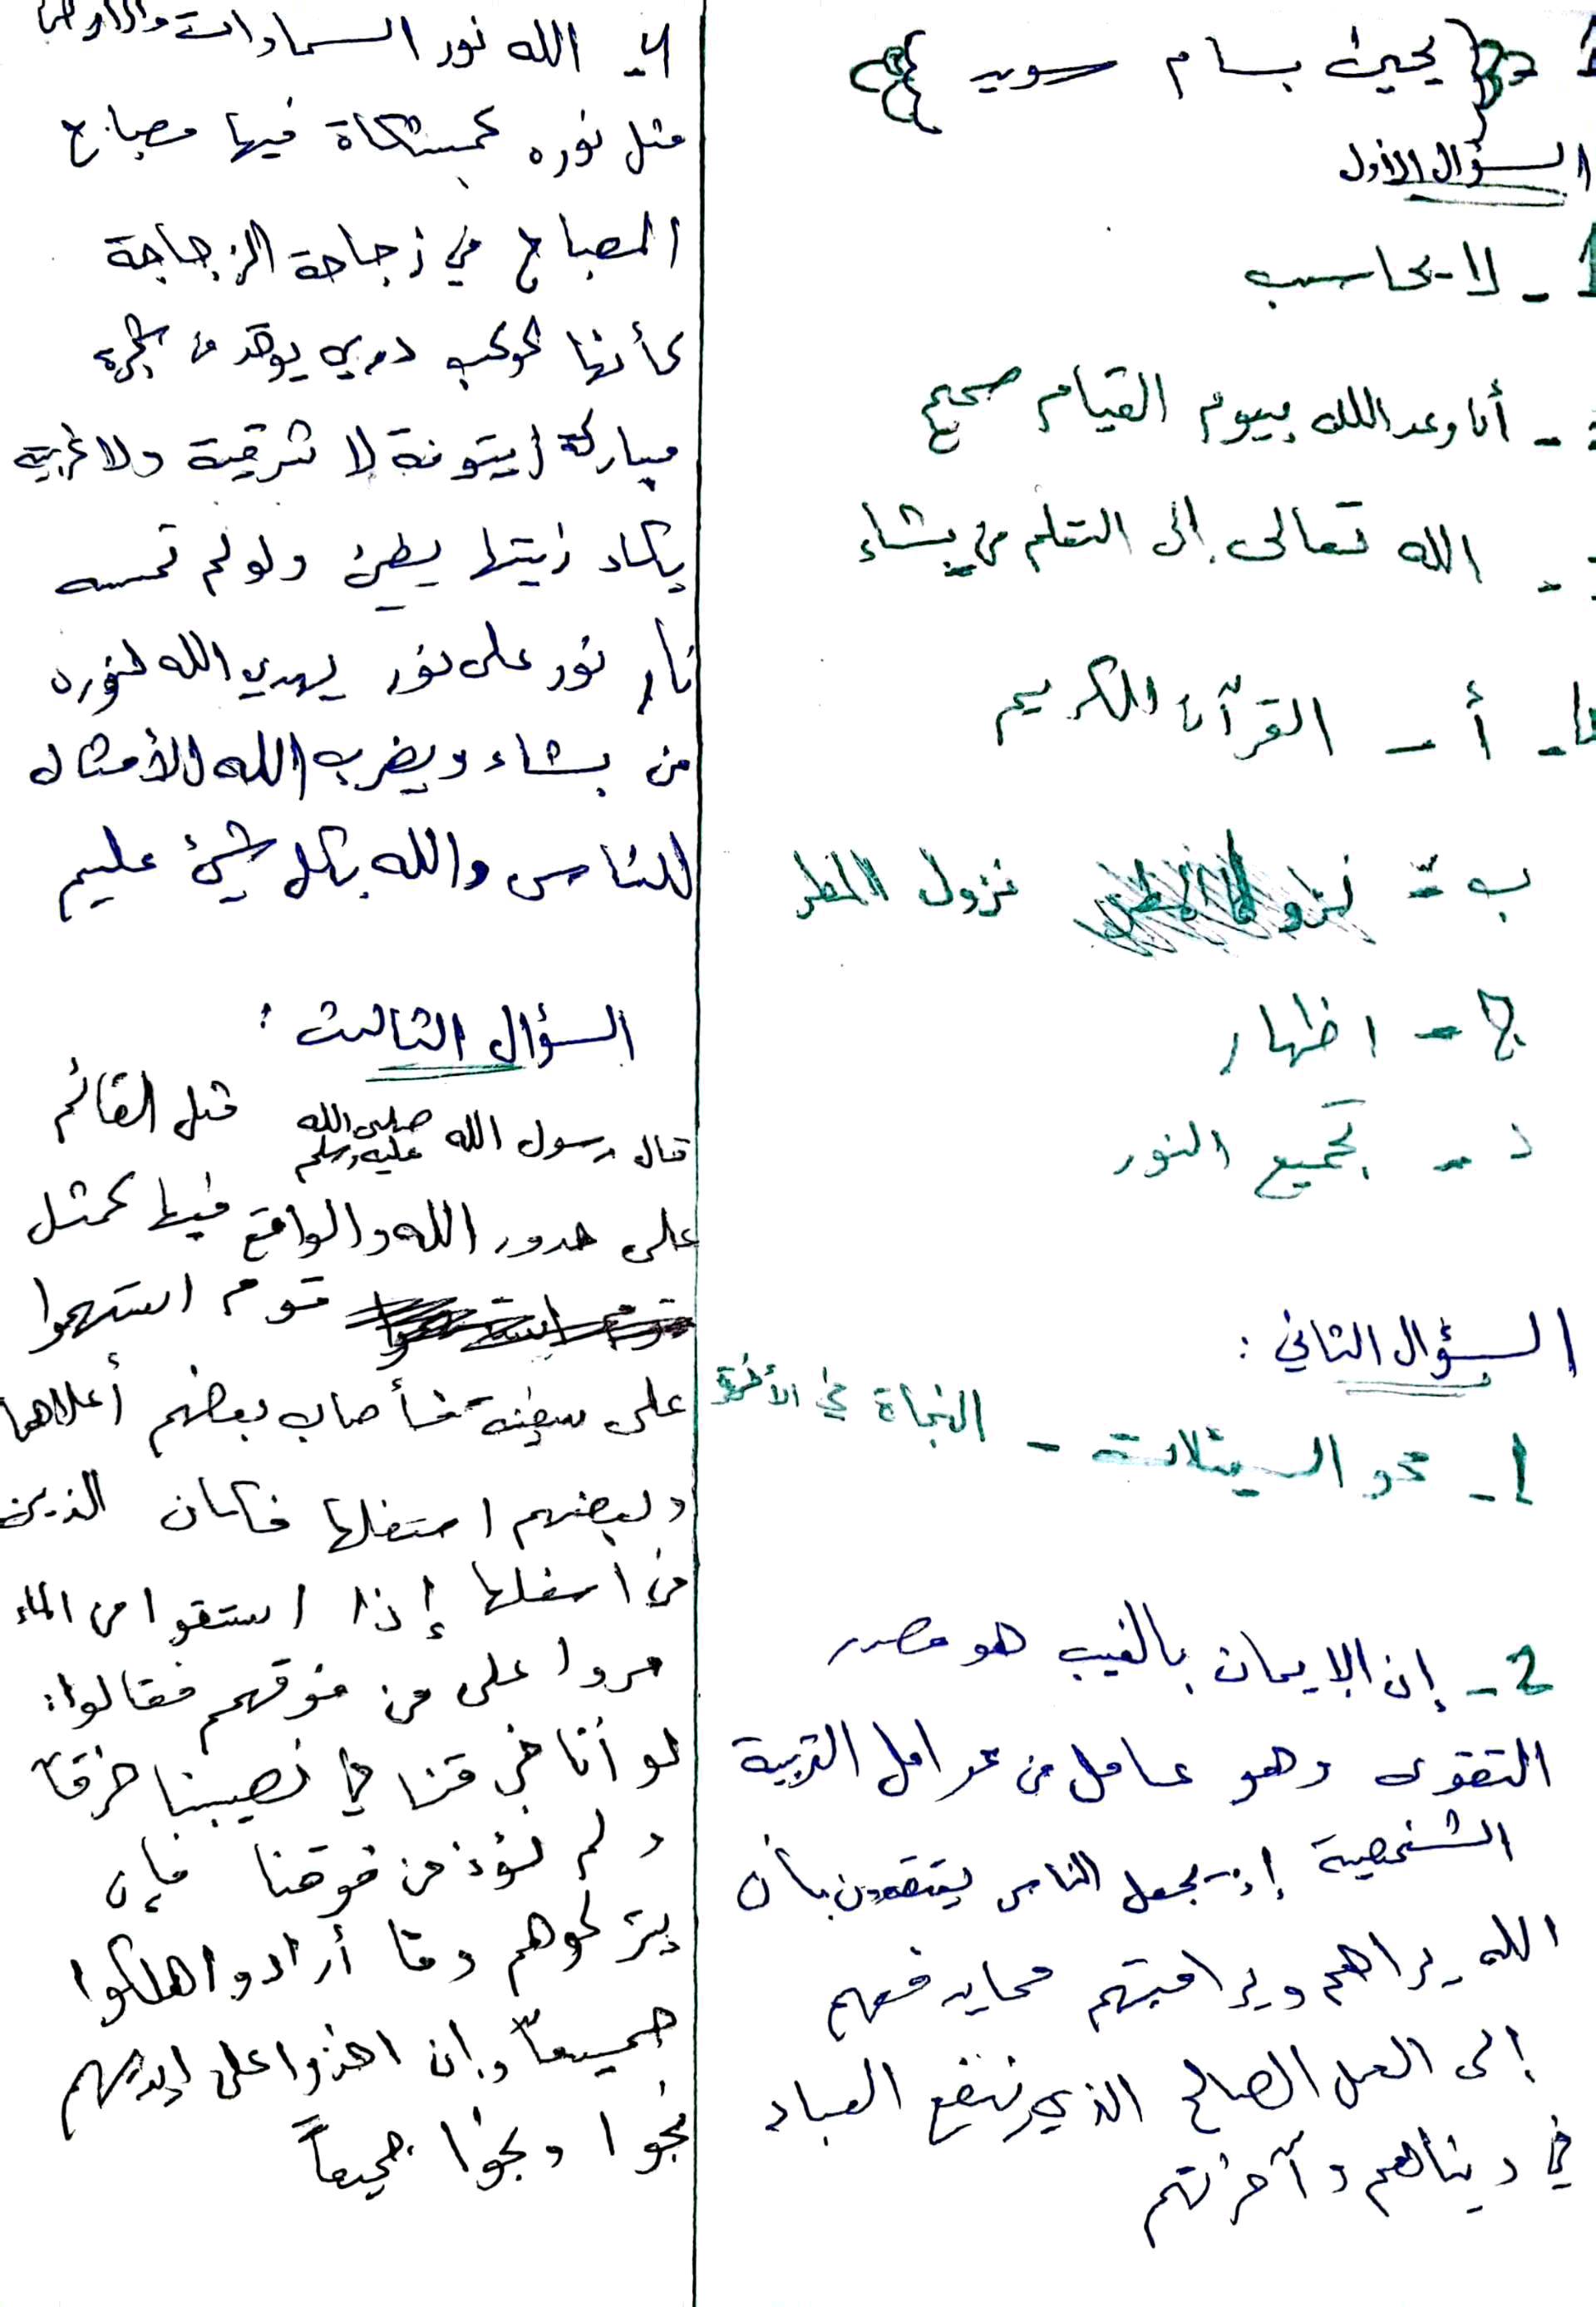 يحيى بسام سويد
السؤال الأول
1 - لا يحاسب
- أن وعد الله بيوم القيام صحيح
- الله تعالى إلى التعلم من يشاء
- أ - القرآن الكريم
ب - نزول المطر
ج - اظهار
د - تجميع النور
السؤال الثاني :
1 - محو السيئات - النجاة في الأخرة
2 - إن الإيمان بالغيب هو مصدر
التقوى وهو عامل من عوامل التربية
الشخصية إذ يجعل الناس يعتقدون بأن
الله يراهم ويراقبهم
إلى العمل الصالح الذي ينفع العباد
في ديناهم وآخرتهم
4 - الله نور السماوات والارض
مثل نوره كمشكاة فيها مصباح
المصباح في زجاجة الزجاجة
كأنها كوكب دري يوقد من شجرة
مباركة زيتونة لا شرقية ولا غربية
يكاد زيتها يضيئ ولو لم تمسه
نار نور على نور يهدي الله لنوره
من يشاء ويضرب الله الأمثال
للناس والله بكل شيئ عليم
السؤال الثالث :
قال رسول الله صلى الله عليه وسلم مثل القائم
على حدود الله والواقع فيها كمثل
قوم استهموا
على سفينة فأصاب بعضهم أعلاها
وبعضهم اسفلها فكان الذين
في اسفلها إذا استقوا من الماء
مروا على من فوقهم فقالوا:
لو أنا خرقنا في نصيبنا خرقاً
ولم نؤذ من فوقنا فإن
يتركوهم وما أرادوا هلكوا
جميعاً وإن اخذوا على ايديهم
نجوا ونجوا جميعاً